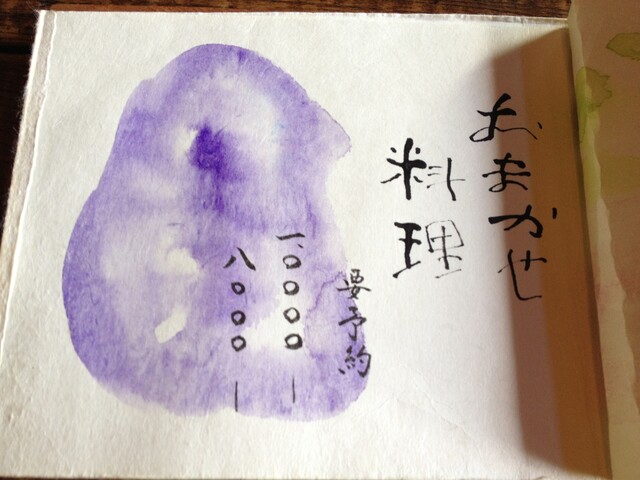 おまかせ
料理
要予約
一、〇〇〇〇ー
八〇〇〇ー